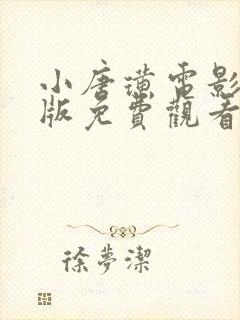 小唐璜電影
版免費觀看
徐夢潔